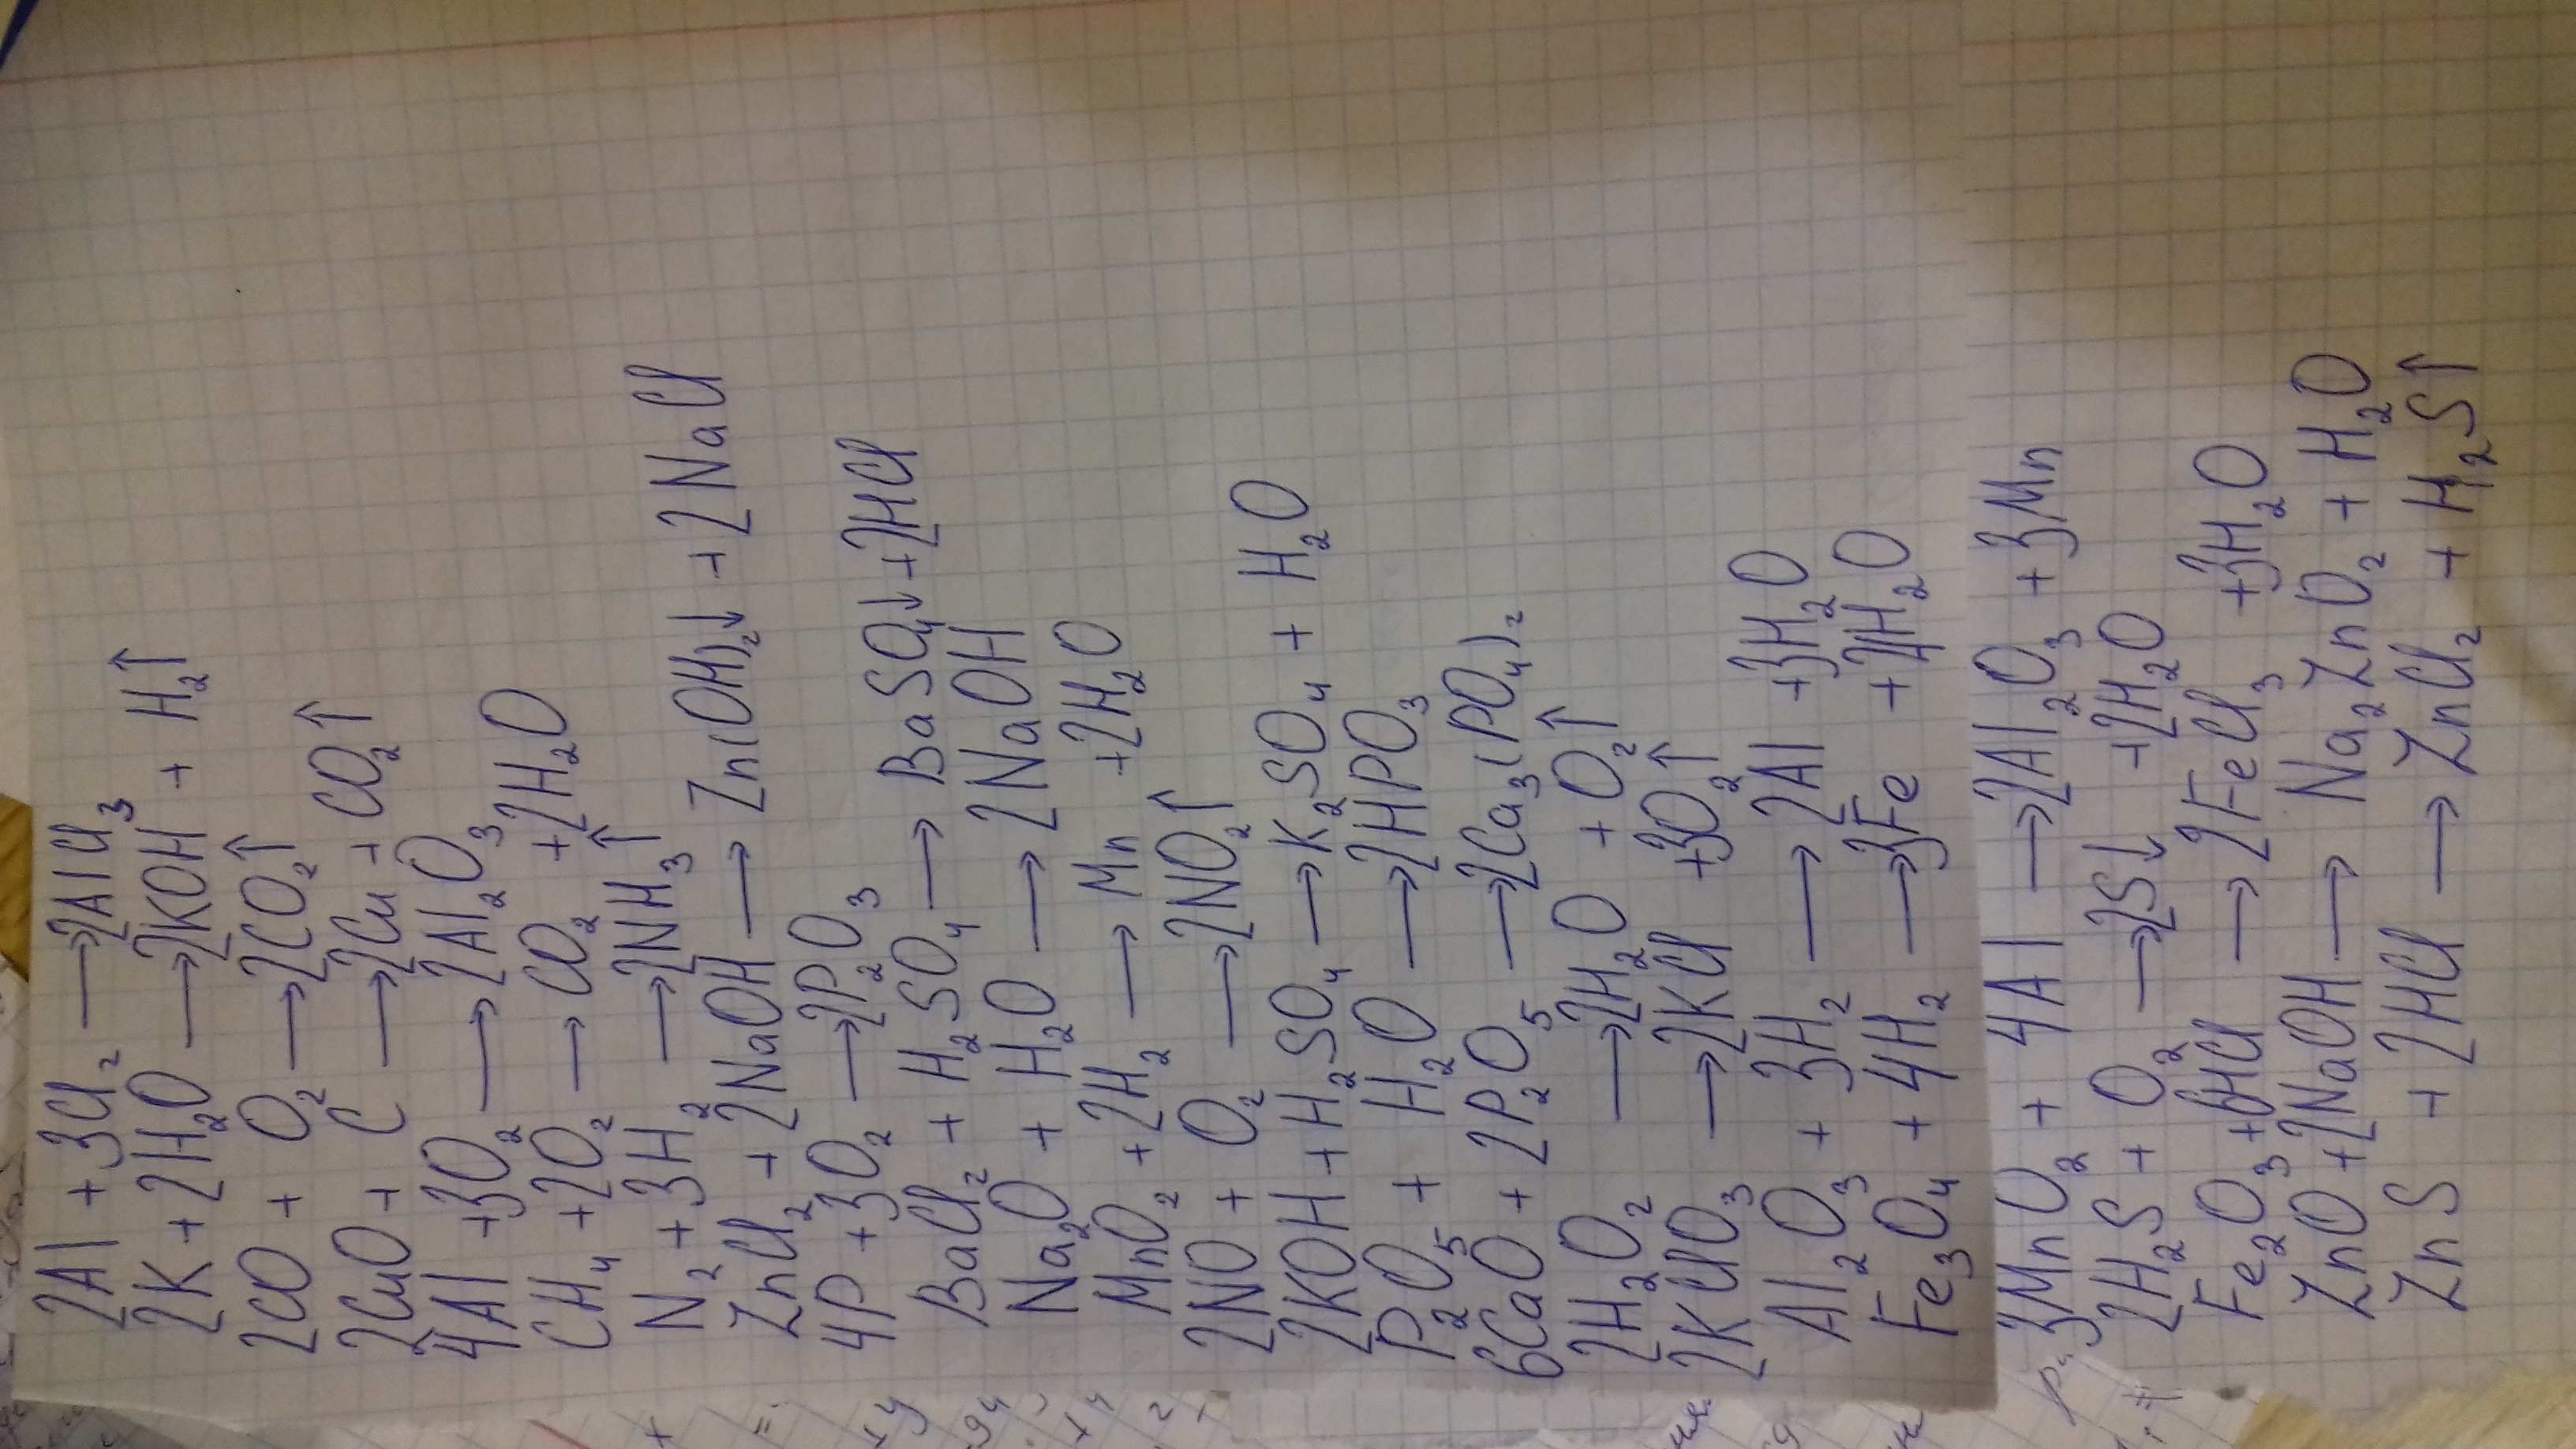 2Al + 3Cl₂ → 2AlCl₃
2K + 2H₂O → 2KOH + H₂↑
2CO + O₂ → 2CO₂↑
2CuO + C → 2Cu + CO₂↑
4Al + 3O₂ → 2Al₂O₃
CH₄ + 2O₂ → CO₂ + 2H₂O
N₂ + 3H₂ → 2NH₃↑
ZnCl₂ + 2NaOH → Zn(OH)₂↓ + 2NaCl
4P + 3O₂ → 2P₂O₃
BaCl₂ + H₂SO₄ → BaSO₄↓ + 2HCl
Na₂O + H₂O → 2NaOH
MnO₂ + 2H₂ → Mn + 2H₂O
2NO + O₂ → 2NO₂↑
2KOH + H₂SO₄ → K₂SO₄ + H₂O
P₂O₅ + H₂O → 2HPO₃
6CaO + 2P₂O₅ → 2Ca₃(PO₄)₂
2H₂O₂ → 2H₂O + O₂↑
2KClO₃ → 2KCl + 3O₂↑
Al₂O₃ + 3H₂ → 2Al + 3H₂O
Fe₃O₄ + 4H₂ → 3Fe + 4H₂O
3MnO₂ + 4Al → 2Al₂O₃ + 3Mn
2H₂S + O₂ → 2S↓ + 2H₂O
Fe₂O₃ + 6HCl → 2FeCl₃ + 3H₂O
ZnO + 2NaOH → Na₂ZnO₂ + H₂O
ZnS + 2HCl → ZnCl₂ + H₂S↑